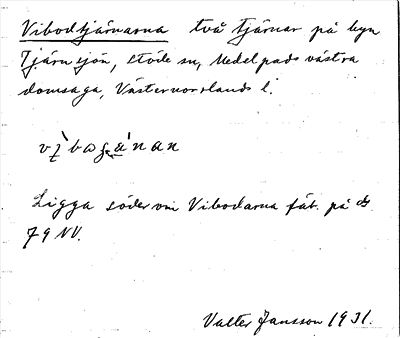 Vibodtjärnarna två tjärnar på byn
Tjärnsjön, Stöde sn, Medelpads västra
domsaga, Västernorrlands l.
Ligga söder om Vibodarna fäb. på
79 NV.
Valter Jansson 1931.